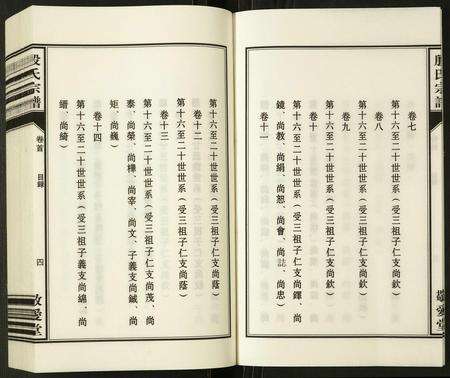 殷氏宗譜
卷七
第十六至二十世世系(受三祖子仁支尚欽)
卷八
第十六至二十世世系(受三祖子仁支尚欽)
卷九
第十六至二十世世系(受三祖子仁支尚欽)
卷十
第十六至二十世世系(受三祖子仁支尚鐸、尚
鏡、尚教、尚絹、尚恕、尚會、尚誌、尚忠)
卷十一
敬愛堂
第十六至二十世世系(受三祖子仁支尚蔭)
卷十二
第十六至二十世世系(受三祖子仁支尚蔭)
卷十三
第十六至二十世世系(受三祖子仁支尚茂、尚
泰、尚榮、尚樺、尚宰、尚文、子義支尚鉞、尚
矩、尚巍)
卷十四
第十六至二十世世系(受三祖子義支尚綿、尚
縉、尚綺)
殷氏宗譜
卷首
目録
四
敬愛堂